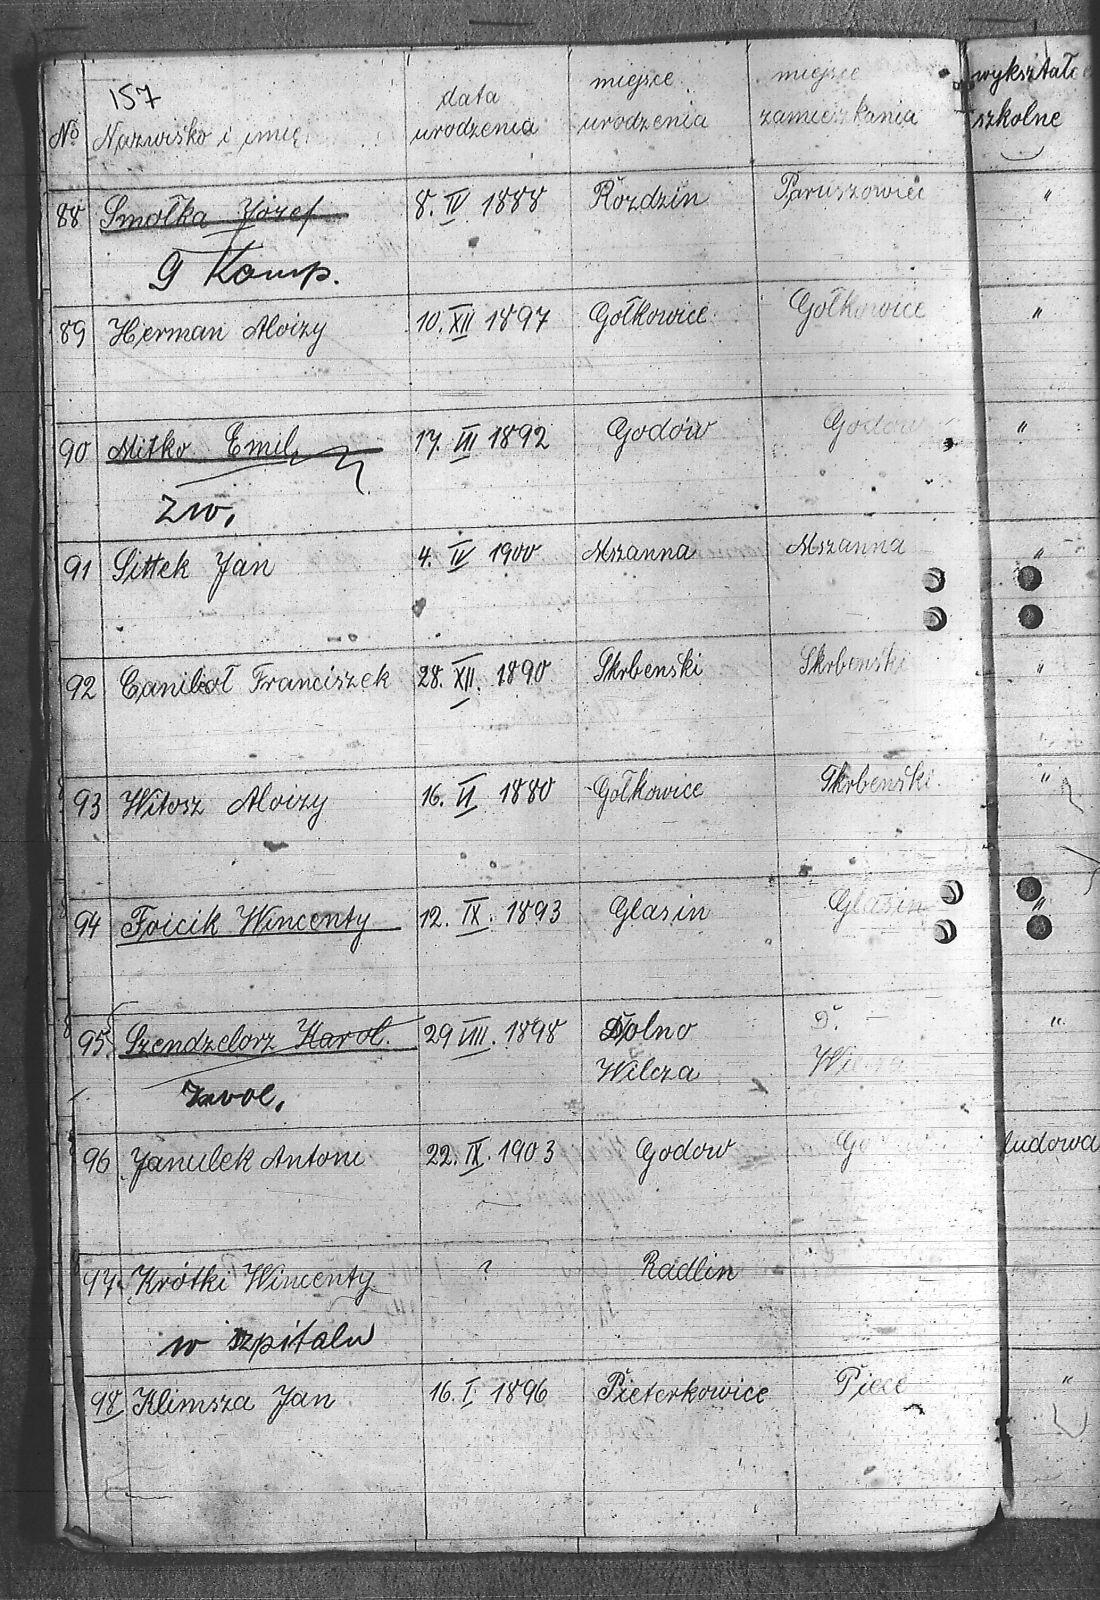 157
№ Nazwisko i imię data urodzenia miejsce urodzenia miejsce zamieszkania wykształc szkolne
88 Smołka Józef 8. IV 1888 Rozdzin Paruszowiec "
9 Komp.
89 Herman Aloizy 10. XII 1897 Gołkowice Gołkowice "
90 Mitko Emil 17. III 1892 Godów Godów "
zw.
91 Sittek Jan 4. IV 1900 Mszanna Mszanna "
92 Franciszek 28. XII. 1890 Skrbenski Skrbenski "
93 Witosz Aloizy 16. VI 1880 Gołkowice Skrbeński "
94 Foicik Wincenty 12. IX. 1893 Glasin Glasin "
95 Szendzelorz Karol. 29 VIII. 1898 Dolno D. "
Wilcza Wilcza
zwol.
96 Janulek Antoni 22. IX. 1903 Godow ludowa
97 Krótki Wincenty ? Radlin
w szpitalu
98 Klimsza Jan 16. I. 1896 Pieterkowice Piece "